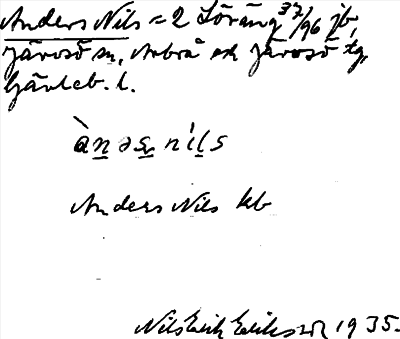 Anders Nils = 2 Löräng 37/96 jb,
Järvsö sn, Arbrå och Järvsö tg,
Gävleb. l.
ànəs níls
Anders Nils kb
Nils Erik Eriksson 1935.